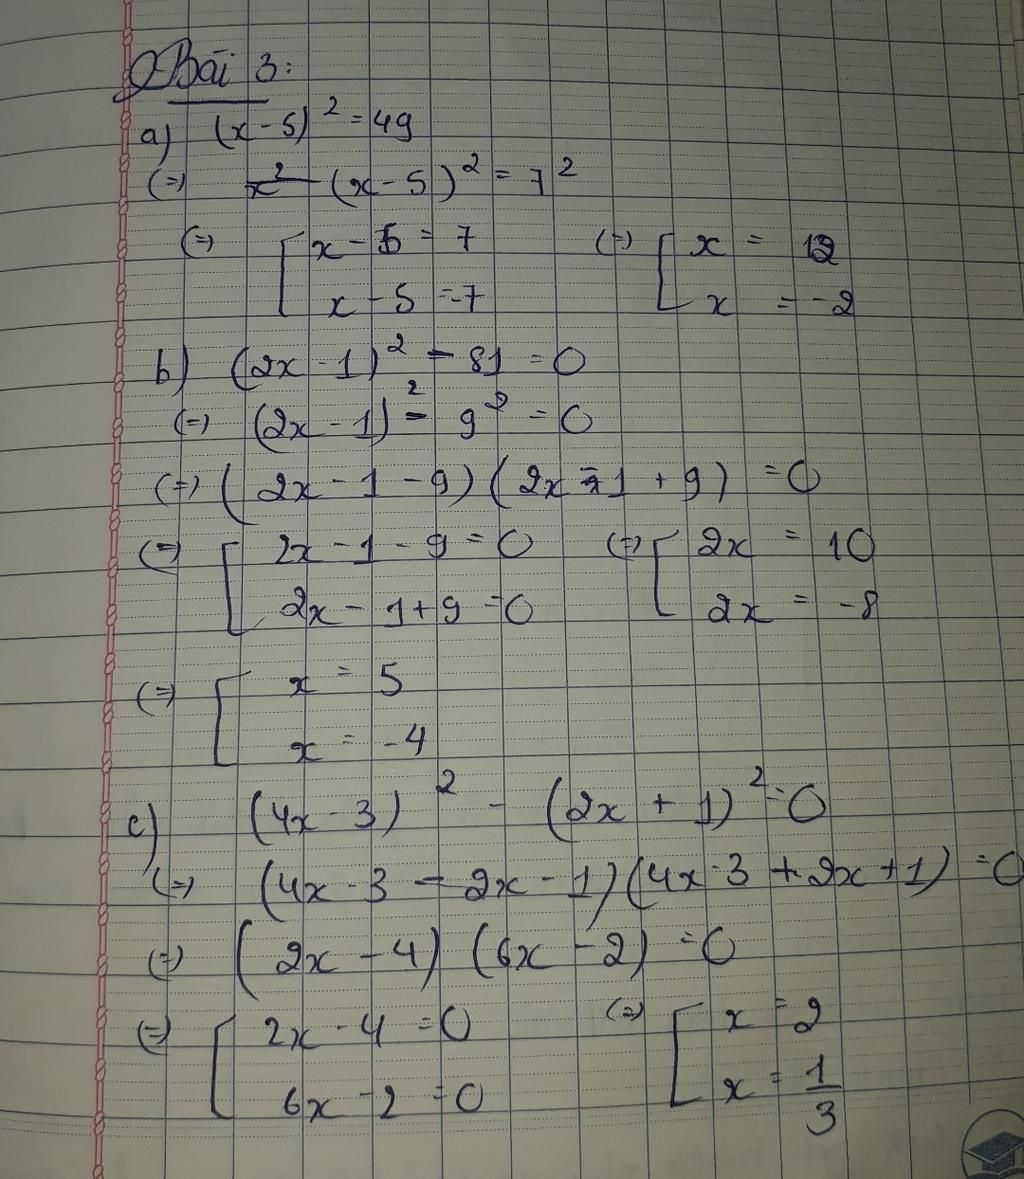 Bài 3:
a) (x - 5)² = 49
(=) (x - 5)² = 7²
(=) [ x - 5 = 7 (=) [ x = 12
x - 5 = -7 x = -2
b) (2x - 1)² - 81 = 0
(=) (2x - 1)² - 9² = 0
(=) (2x - 1 - 9) (2x - 1 + 9) = 0
(=) [ 2x - 1 - 9 = 0 (=) [ 2x = 10
2x - 1 + 9 = 0 2x = -8
(=) [ x = 5
x = -4
c) (4x - 3)² - (2x + 1)² = 0
(=) (4x - 3 - 2x - 1) (4x - 3 + 2x + 1) = 0
(=) (2x - 4) (6x - 2) = 0
(=) [ 2x - 4 = 0 (=) [ x = 2
6x - 2 = 0 x = 1/3